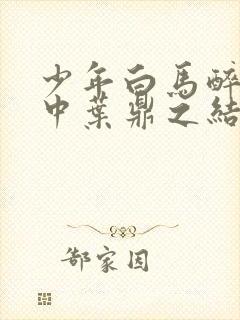 少年白馬醉
中葉鼎之結
郜家因